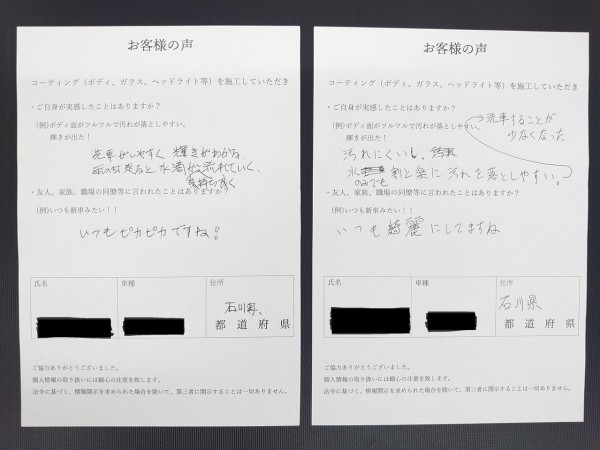 お客様の声
コーティング（ボディ、ガラス、ヘッドライト等）を施工していただき
・ご自身が実感したことはありますか？
(例)ボディ面がツルツルで汚れが落としやすい。
輝きが出た！
洗車がしやすく 輝きがわかる
雨の日走ると水滴が流れていく、
気持ち良く
・友人、家族、職場の同僚等に言われたことはありますか？
(例)いつも新車みたい！！
いつもピカピカですね！
氏名
車種
住所
石川県、
都道府県
ご協力ありがとうございました。
個人情報の取り扱いには細心の注意を致します。
法令に基づく、情報開示を求められた場合を除いて、第三者に開示することは一切ありません。
お客様の声
コーティング（ボディ、ガラス、ヘッドライト等）を施工していただき
・ご自身が実感したことはありますか？
(例)ボディ面がツルツルで汚れが落としやすい。
輝きが出た！
洗車することが
少なくなった
汚れにくいし、
水のみでも 割と楽に汚れを落としやすい。
・友人、家族、職場の同僚等に言われたことはありますか？
(例)いつも新車みたい！！
いつも綺麗にしてますね
氏名
車種
住所
石川県
都道府県
ご協力ありがとうございました。
個人情報の取り扱いには細心の注意を致します。
法令に基づく、情報開示を求められた場合を除いて、第三者に開示することは一切ありません。